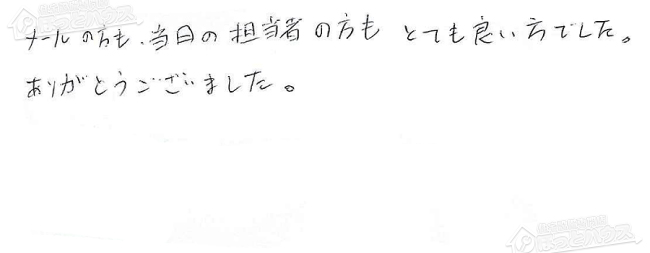 メールの方も、当日の担当者の方も とても良い方でした。
ありがとうございました。